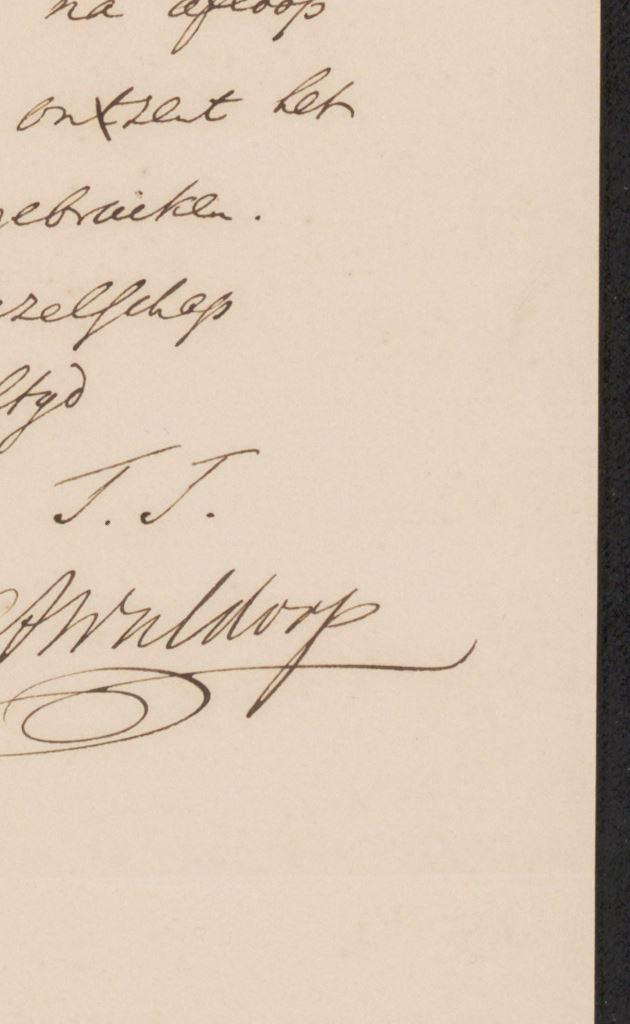 na afloop
het
gebruiken.
zelschap
ltyd
T. T.
AWaldorp